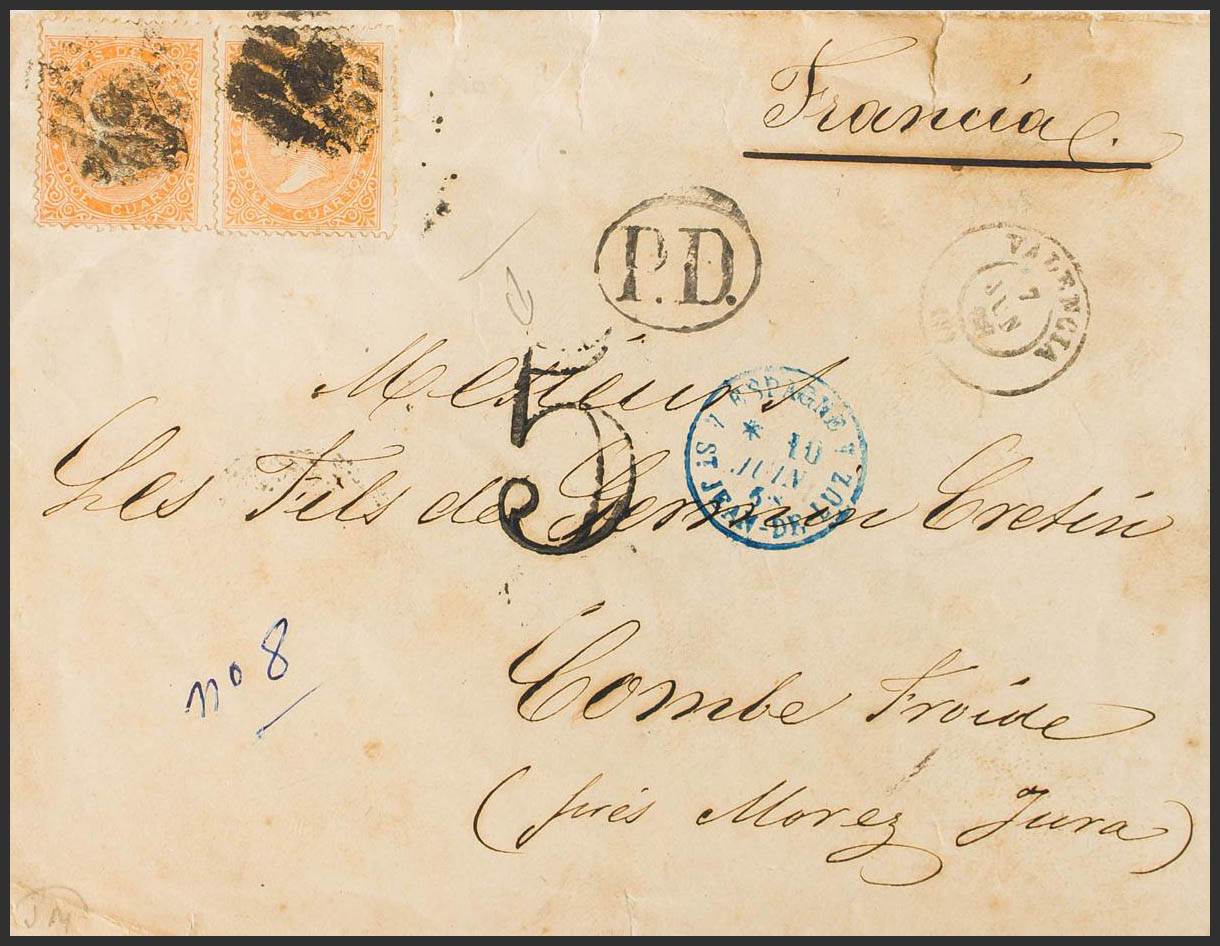 DOCE CUARTOS
DOCE CUARTOS
Francia
P.D.
VALENCIA
7
JUN
5
ESPAGNE
10
JUIN
ST JEAN-DE-LUZ
Messieurs
Les Fils de Germain Cretin
no 8
Combe Froide
(près Morez Jura)